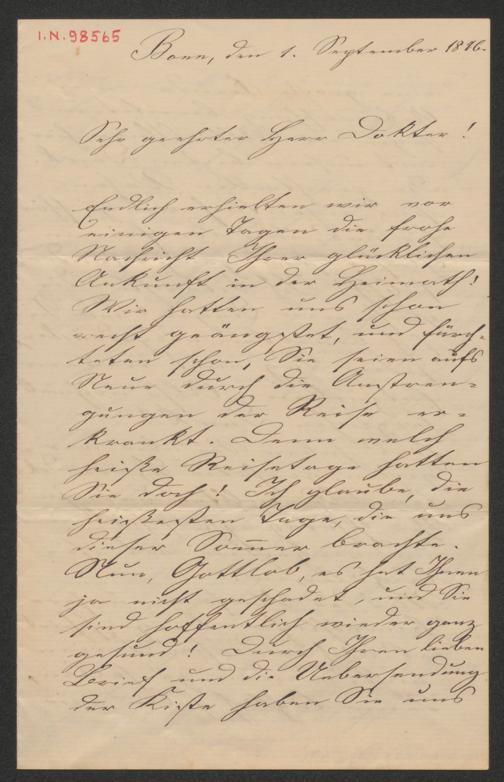 I.N. 98565
Bonn, den 1. September 1876.
Sehr geehrter Herr Doktor!
Endlich erhielten wir vor
einigen Tagen die frohe
Nachricht Ihrer glücklichen
Ankunft in der Heimath!
Wir hatten uns schon
recht geängstet, und fürch-
teten schon, Sie seien aufs
Neue durch die Anstren-
gungen der Reise er-
krankt. Denn welch
heiße Reisetage hatten
Sie doch! Ich glaube, die
heißesten Tage, die uns
dieser Sommer brachte.
Nun, Gottlob, es hat Ihnen
ja nicht geschadet, und Sie
sind hoffentlich wieder ganz
gesund! Durch Ihren lieben
Brief und die Uebersendung
der Kiste haben Sie uns